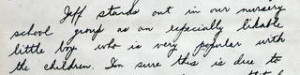 Jeff stands out in our nursery
school group as an especially likable
little boy who is very popular with
the children. Im sure this is due to